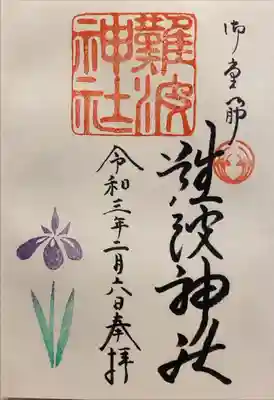 御堂筋
難波神社
難波神社
令和三年二月六日奉拝